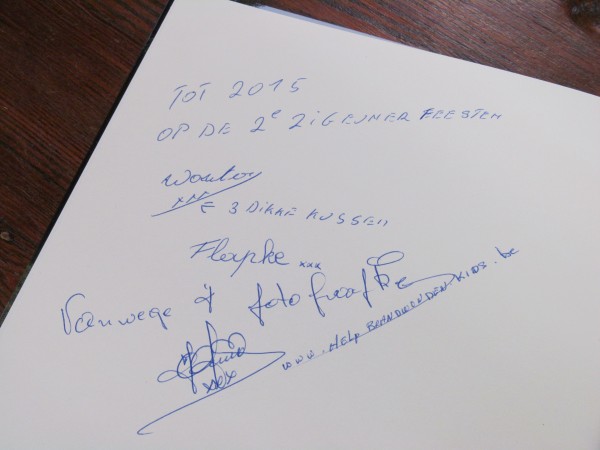 TOT 2015
OP DE 2e ZIGEUNER FEESTEN
Wouter
xxx
E 3 DIKKE KUSSEN
Flapke xxx
Vanwege 't fotograafke
xxx
www.HELP BRANDWONDEN KIDS.be